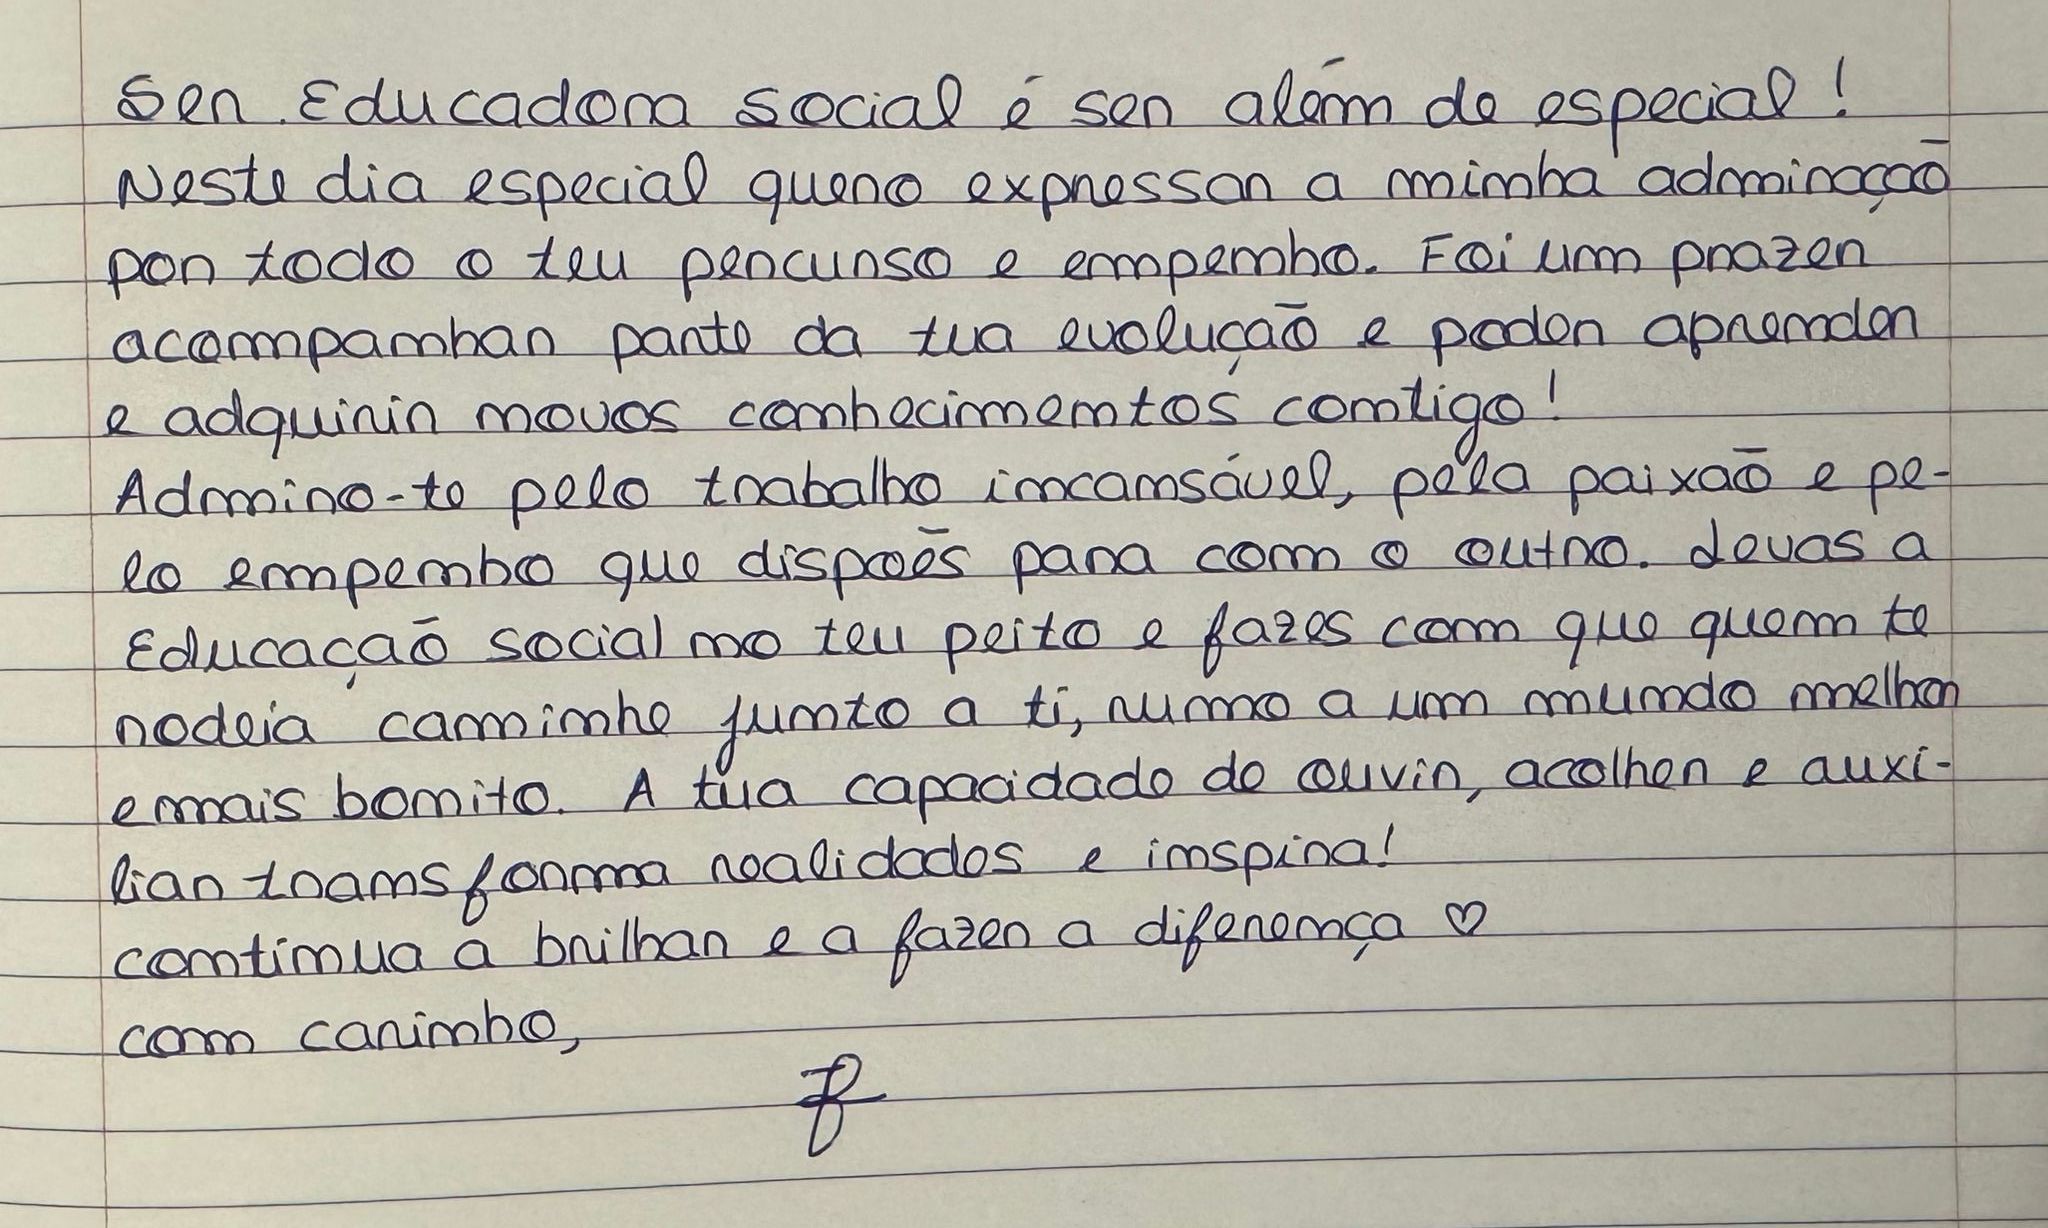 Ser Educadora Social é ser além de especial!
Neste dia especial quero expressar a minha admiração
por todo o teu percurso e empenho. Foi um prazer
acompanhar parte da tua evolução e poder aprender
e adquirir novos conhecimentos contigo!
Admiro-te pelo trabalho incansável, pela paixão e pe-
lo empenho que dispões para com o outro. Levas a
Educação social no teu peito e fazes com que quem te
rodeia caminhe junto a ti, rumo a um mundo melhor
e mais bonito. A tua capacidade de ouvir, acolher e auxi-
liar transforma realidades e inspira!
Continua a brilhar e a fazer a diferença ♡
Com carinho,